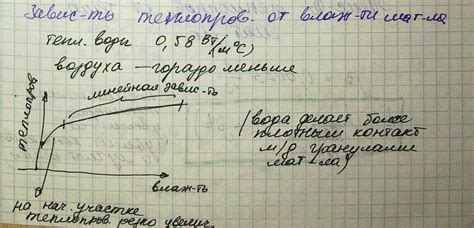 Завис-ть теплопров. от влаж-ти мат-ла
тепл. воды 0,58 Вт/(м°С)
воздуха — гораздо меньше
линейная завис-ть
теплопров
влаж-ть
на нач. участке
теплопров. резко увелич.
(вода делает более
плотным контакт
м/д гранулами
мат-ла)